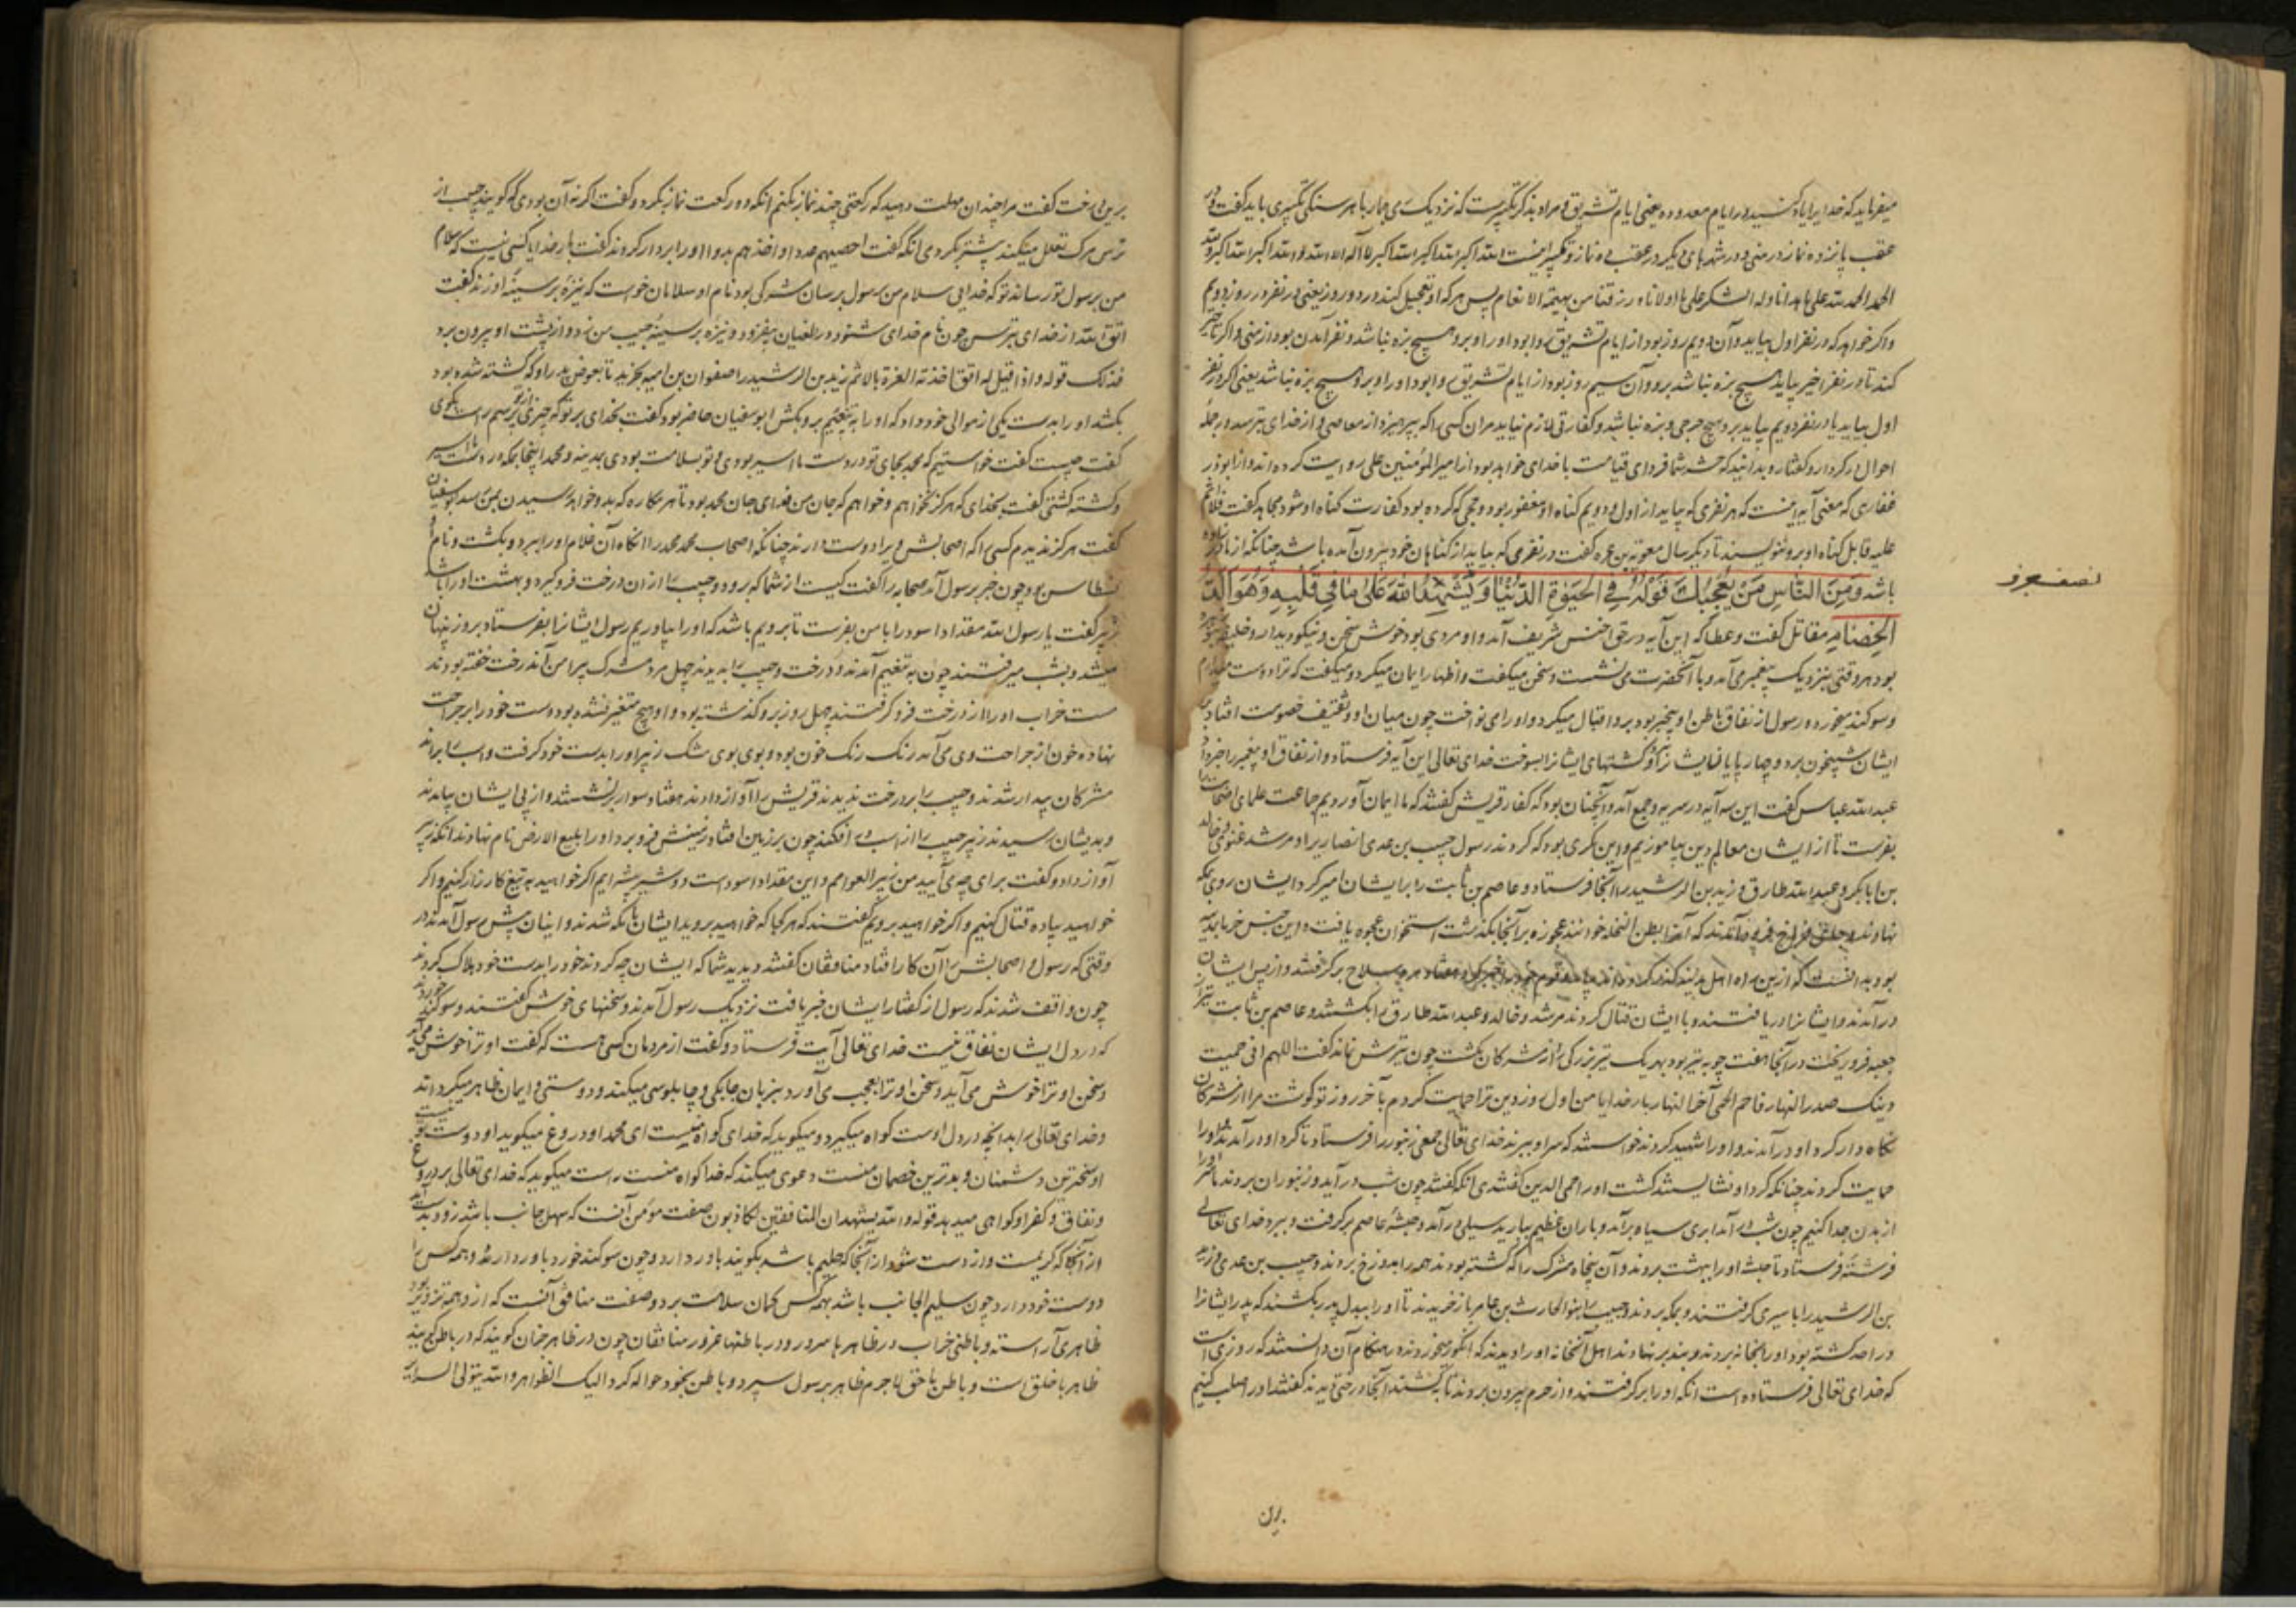 میفرماید که خدایرا یاد کنید در ایام معدوده یعنی ایام تشریق و مراد بذکر تکبیرست که نزدیک رمی جمار با هر سنگی تکبیری باید گفت و در
عقب پانزده نماز در منی و در شهرهای دیگر در عقب ده نماز و تکبیر اینست الله اکبر الله اکبر الله اکبر لا اله الا الله و الله اکبر الله اکبر و لله
الحمد الحمد لله علی ما هدانا وله الشکر علی ما اولانا و رزقنا من بهیمة الانعام پس هرکه او تعجیل کند در دو روز یعنی در نفر در روز دویم
واگر خواهد که در نفر اول بیاید و آن دویم روز بود از ایام تشریق روا بود او را و برو هیچ بزه نباشد و نفر آمدن بود از منی و اگر تاخیر
کند تا در نفر اخیر بیاید هیچ بزه نباشد برو و آن سیم روز بود از ایام تشریق روا بود او را و برو هیچ بزه نباشد یعنی اگر در نفر
اول بیاید یا در نفر دویم بیاید برو هیچ حرجی و بزه نباشد و کفارتی لازم نیاید مران کسی را که بپرهیزد از معاصی و از خدای بترسد در جمله
احوال در کردار و گفتار و بدانید که حشر شما فردای قیامت با خدای خواهد بود از امیرالمؤمنین علی روایت کرده اند و از ابوذر
غفاری که معنی آیه اینست که هر نفری که بیاید از اول و دویم گناه او مغفور بود و حجی که کرده بود کفارت گناه او شود مجاهد گفت فلا اثم
علیه قابل گناه او برو ننویسند تا دیگر سال معویة بن قره گفت در نفری که بیاید از گناهان خود بیرون آمده باشد چنانکه از مادر زاده
باشد وَمِنَ النَّاسِ مَنْ يُعْجِبُكَ قَوْلُهُ فِي الْحَيٰوةِ الدُّنْيٰا وَيُشْهِدُ اللّٰهَ عَلىٰ مٰا فِي قَلْبِهِ وَهُوَ أَلَدُّ
الْخِصٰامِ مقاتل گفت و عطا که این آیه در حق اخنس شریف آمد و او مردی بود خوش سخن و نیکو دیدار و حلیف بنی زهره
بود هر وقتی بنزدیک پیغمبر می آمد و با آنحضرت می نشست و سخن میگفت و اظهار ایمان میکرد و میگفت که ترا دوست میدارم
وسوگند میخورد و رسول از نفاق باطن او بیخبر بود برو اقبال میکرد و او را می نواخت چون میان او و ثقیف خصومت افتاد بر
ایشان شبیخون برد و چهارپایان ایشانرا و کشتهای ایشانرا بسوخت خدای تعالی این آیه فرستاد و از نفاق او پیغمبر را خبر داد
عبدالله عباس گفت این سه آیه در سریه رجیع آمد و آنچنان بود که کفار قریش گفتند که ما ایمان آوردیم جماعت علمای اصحاب را
بفرست تا از ایشان معالم دین بیاموزیم و این مکری بود که کردند رسول حبیب بن عدی انصاریرا و مرشد غنوی و خالد
بن ابابکر و عبدالله طارق و زید بن الرشید را آنجا فرستاد و عاصم بن ثابت را بر ایشان امیر کرد ایشان روی بمکه
نهادند که آنرا بطن النخله خوانند عجوزه بر آنجا بگذشت استخوان عجوه یافت و این جنس خرما بمدینه
بود بدانست که ازین راه اهل مدینه هفتاد مرد سلاح برگرفتند و از پس ایشان
درآمدند و ایشانرا دریافتند و با ایشان قتال کردند مرشد و خالد و عبدالله طارق را بکشتند و عاصم بن ثابت تیر از
جعبه فرو ریخت در آنجا هفت چوبه تیر بود بهر یک تیر بزرگی را از مشرکان بکشت چون تیرش نماند گفت اللهم انی حمیت
دینک صدر النهار فاحم لحمی آخر النهار بار خدایا من اول روز دین ترا حمایت کردم بآخر روز تو گوشت مرا از مشرکان
نگاه دار گرد او درآمدند و او را شهید کردند خواستند که سر او ببرند خدای تعالی جمعی زنبور را فرستاد تا گرد او درآمدند و او را
حمایت کردند چنانکه گرد او نشایستند گشت او را حمی الدین گفتندی آنگه گفتند چون شب درآید و زنبوران بروند ما سر او را
از بدن جدا کنیم چون شب درآمد ابری سیاه برآمد و باران عظیم ببارید سیلی درآمد و جثه عاصم برگرفت و ببرد خدای تعالی
فرشته فرستاد تا جثه او را ببهشت بردند و آن پنجاه مشرک را که کشته بودند همه را بدوزخ بردند و حبیب بن عدی و زید
بن الرشید را باسیری گرفتند و بمکه بردند و حبیب را بنو الحارث بن عامر باز خریدند تا او را ببدل پدر بکشند که پدر ایشانرا
در احد کشته بود او را بخانه بردند و بند بر نهادند اهل آنخانه او را دیدند که انگور میخورد نه در هنگام آن دانستند که روزی است
که خدای تعالی فرستاده است آنگه او را برگرفتند و از حرم بیرون بردند تا بکشند آنجا درختی دیدند گفتند او را صلب کنیم
برین
نصف جزو
برین درخت گفت مرا چندان مهلت دهید که رکعتی چند نماز بکنم آنگه دو رکعت نماز بکرد و گفت اگر نه آن بودی که گویند حبیب از
ترس مرگ تعلل میکند بیشتر بکردمی آنگه گفت احصیهم عددا و اخذهم بددا او را بردار کردند گفت بار خدایا کسی نیست که سلام
من برسول تو رساند تو که خدایی سلام من برسول برسان مشرکی بود نام او سلامان خواست که نیزه بر سینه او زند گفت
اتق الله از خدای بترس چون نام خدای شنود در طغیان بیفزود و نیزه بر سینه حبیب من زد و از پشت او بیرون برد
فذلک قوله واذا قیل له اتق الله اخذته العزة بالاثم زید بن الرشید را صفوان بن امیه بخرید تا بعوض پدر او که کشته شده بود
بکشد او را بدست یکی از موالی خود داد که او را به تنعیم برو بکش ابوسفیان حاضر بود گفت بخدای بر تو که چیزی از تو پرسم راست بگوی
گفت چیست گفت خواستیم که محمد بجای تو در دست ما اسیر بودی و تو بسلامت بودی بمدینه و محمد اینجا بمکه در دست ما اسیر
وکشته گشتی گفت بخدای که هرگز نخواهم و خواهم که جان من فدای جان محمد بود تا هر مکاره که بدو خواهد رسیدن بمن رسد ابوسفیان
گفت هرگز ندیدم کسی را که اصحابش ویرا دوست دارند چنانکه اصحاب محمد محمد را آنگاه آن غلام او را ببرد و بکشت و نام او
نسطاس بود چون خبر برسول آمد صحابه را گفت کیست از شما که برود و حبیب را از ان درخت فرو گیرد و بهشت او را باشد
زبیر گفت یا رسول الله مقداد اسود را با من بفرست تا برویم باشد که او را بیاوریم رسول ایشانرا بفرستاد بروز پنهان
میشدند و بشب میرفتند چون به تنعیم آمدند و درخت و حبیب را بدیدند چهل مرد مشرک پیرامن آندرخت خفته بودند
مست خراب او را از درخت فرو گرفتند چهل روز برو گذشته بود و او هیچ متغیر نشده بود دست خود را بر جراحت
نهاده خون از جراحت وی می آمد رنگ رنگ خون بود و بوی بوی مشک زبیر او را بدست خود گرفت و اسب براند
مشرکان بیدار شدند و حبیب را بر درخت ندیدند قریش را آواز دادند هفتاد سوار برنشستند و از پی ایشان بیامدند
وبدیشان رسیدند زبیر حبیب را از اسب افکند چون بر زمین افتاد زمینش فرو برد او را بلیع الارض نام نهادند آنگه زبیر
آواز داد و گفت برای چه می آیید من زبیر العوامم و این مقداد اسود است دو شیر بیشه ایم اگر خواهید به تیغ کارزار کنیم و اگر
خواهید پیاده قتال کنیم و اگر خواهید برویم گفتند که هر کجا که خواهید بروید ایشان بامکه شدند و اینان پیش رسول آمدند در
وقتی که رسول و اصحابش را آن کار افتاد منافقان گفتند دیدید شما که ایشان چه کردند خود را بدست خود هلاک کردند
چون واقف شدند که رسول از گفتار ایشان خبر یافت نزدیک رسول آمدند و سخنهای خوش گفتند و سوگند خوردند
که در دل ایشان نفاق نیست خدای تعالی آیت فرستاد و گفت از مردمان کسی هست که گفت او ترا خوش می آید
وسخن او ترا خوش می آید و سخن او ترا بعجب می آورد بزبان چابکی و چاپلوسی میکند و دوستی و ایمان ظاهر میگرداند
وخدای تعالی را بدانچه در دل اوست گواه میگیرد و میگوید که خدای گواه منست ای محمد او دروغ میگوید او دوست تو نیست
او سخترین دشمنان و بدترین خصمان منست دعوی میکند که خدا گواه منست راست میگوید که خدای تعالی بر دروغ
ونفاق و کفر او گواهی میدهد قوله والله یشهد ان المنافقین لکاذبون صفت مؤمن آنست که سهل جانب باشد زود بدست آید
از آنجا که کریمست و از دست شود از آنجا که حلیم باشد بگویند باور دارد و چون سوگند خورد باور دارند و همه کس را
دوست خود دارد چون سلیم الجانب باشد بهمه کس گمان سلامت برد و صفت منافق آنست که ازو همه تزویر بود
ظاهری آراسته و باطنی خراب در ظاهر با سرور و در باطنها غرور منافقان چون در ظاهر چنان گویند که در باطن گویند
ظاهر با خلق است و باطن با حق لاجرم ظاهر برسول سپرد و باطن بخود حواله کرد الیک الظواهر والله یتولی السرایر